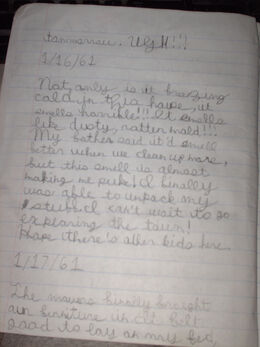 tommorrow. UgH!!!
1/16/61
Not only is it freezing
cold in this house, it
smells horrible!!! It smells
like dusty, rotten mold!!!
My father said it'd smell
better when we clean up more,
but this smell is almost
making me puke! I finally
was able to unpack my
stuff. I can't wait to go
exploring the town!
Hope there's other kids here.
1/17/61
The movers finally brought
our furniture in. It felt
good to lay on my bed,